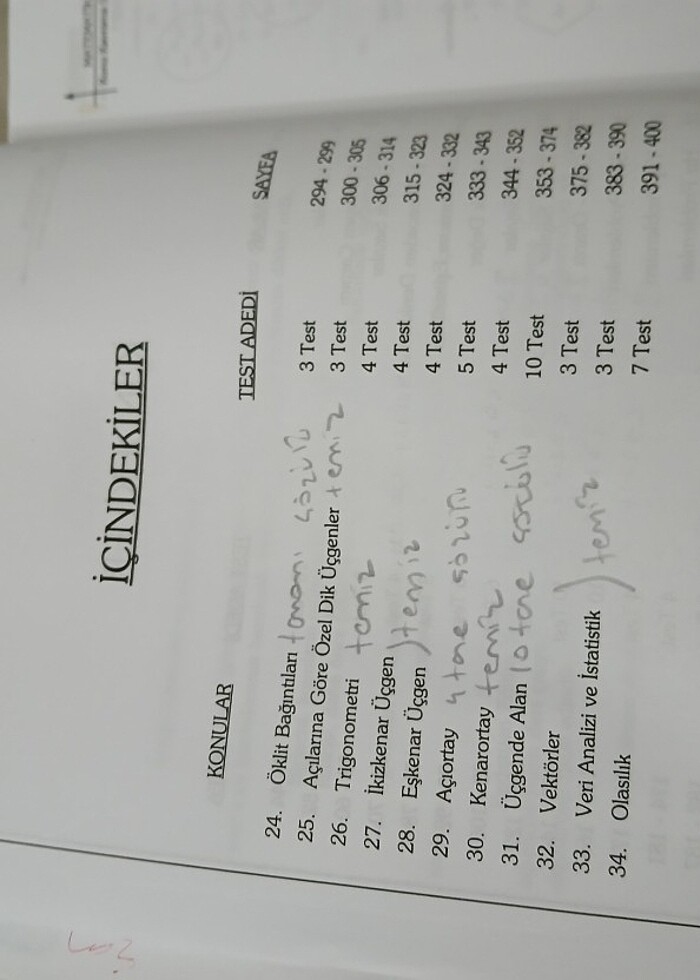 İÇİNDEKİLER
KONULAR TEST ADEDİ SAYFA
24. Öklit Bağıntıları tamamı çözülü 3 Test 294 - 299
25. Açılarına Göre Özel Dik Üçgenler temiz 3 Test 300 - 305
26. Trigonometri temiz 4 Test 306 - 314
27. İkizkenar Üçgen 4 Test 315 - 323
28. Eşkenar Üçgen ) temiz 4 Test 324 - 332
29. Açıortay 4 tane çözülü 5 Test 333 - 343
30. Kenarortay temiz 4 Test 344 - 352
31. Üçgende Alan 10 tane çözülü 10 Test 353 - 374
32. Vektörler 3 Test 375 - 382
33. Veri Analizi ve İstatistik ) temiz 3 Test 383 - 390
34. Olasılık 7 Test 391 - 400